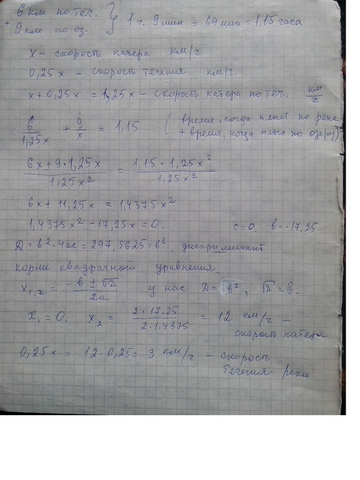 6 км по теч. } 1 ч. 9 мин = 69 мин = 1,15 часа
+ 9 км по оз.
x - скорость катера км/ч
0,25x - скорость течения км/ч.
x + 0,25x = 1,25x - скорость катера по теч. км/ч
6/1,25x + 9/x = 1,15 (время, когда плыл по реке + время, когда плыл по озеру)
6x + 9·1,25x / 1,25x² = 1,15·1,25x² / 1,25x²
6x + 11,25x = 1,4375x²
1,4375x² - 17,25x = 0. c = 0. b = -17,25
D = b² - 4ac = 297,5625 = b². дискриминант
корни квадратного уравнения
x₁,₂ = -b ± √D / 2a у нас D = b², √D = b.
x₁ = 0. x₂ = 2·17,25 / 2·1,4375 = 12 км/ч -
скорость катера
0,25x = 12·0,25 = 3 км/ч - скорость
течения реки